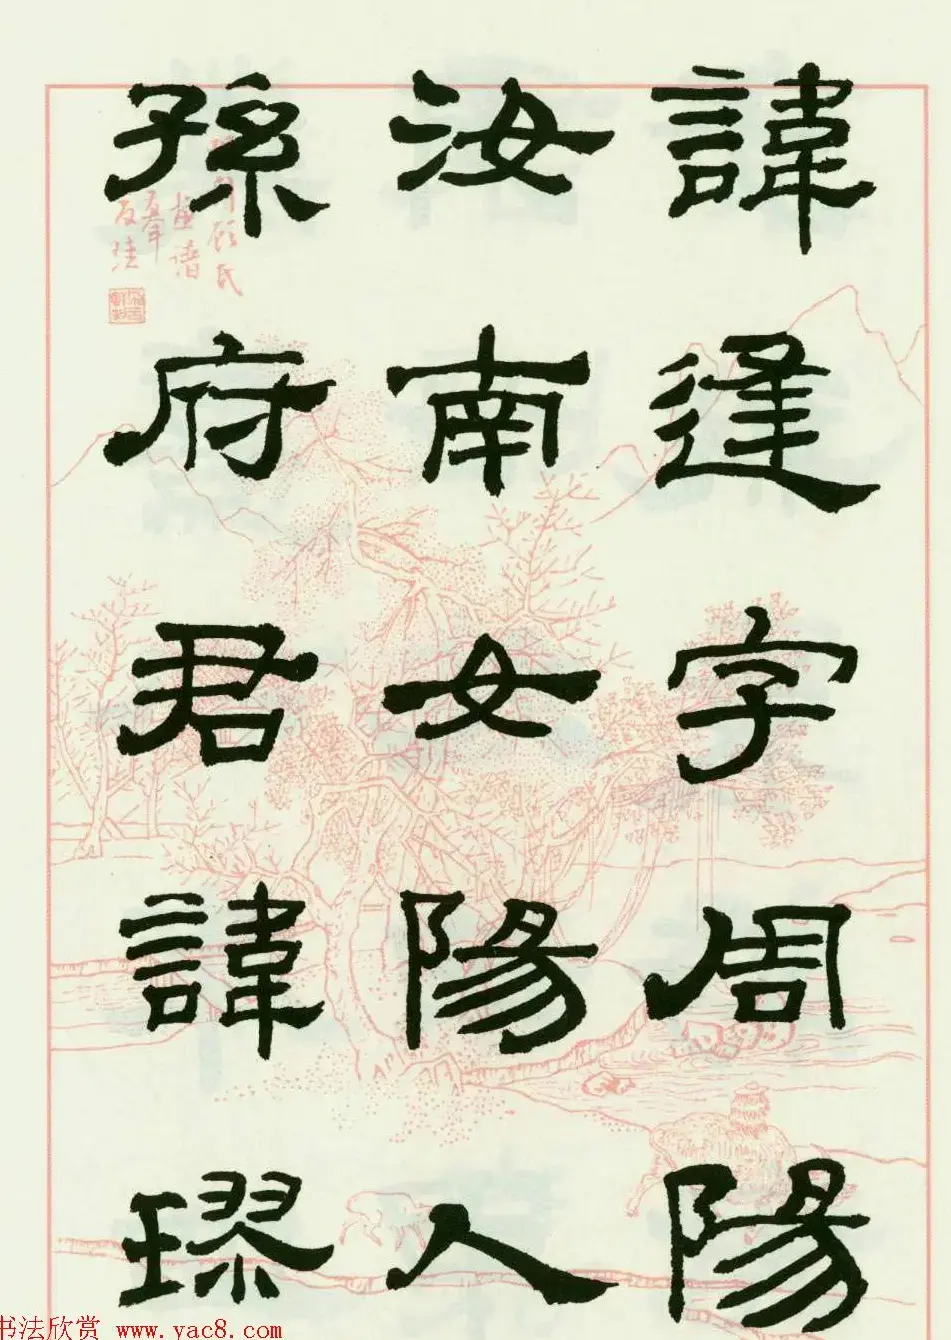 諱逢字周陽
汝南女陽人
孫府君諱璆
书法欣赏 www.yac8.com